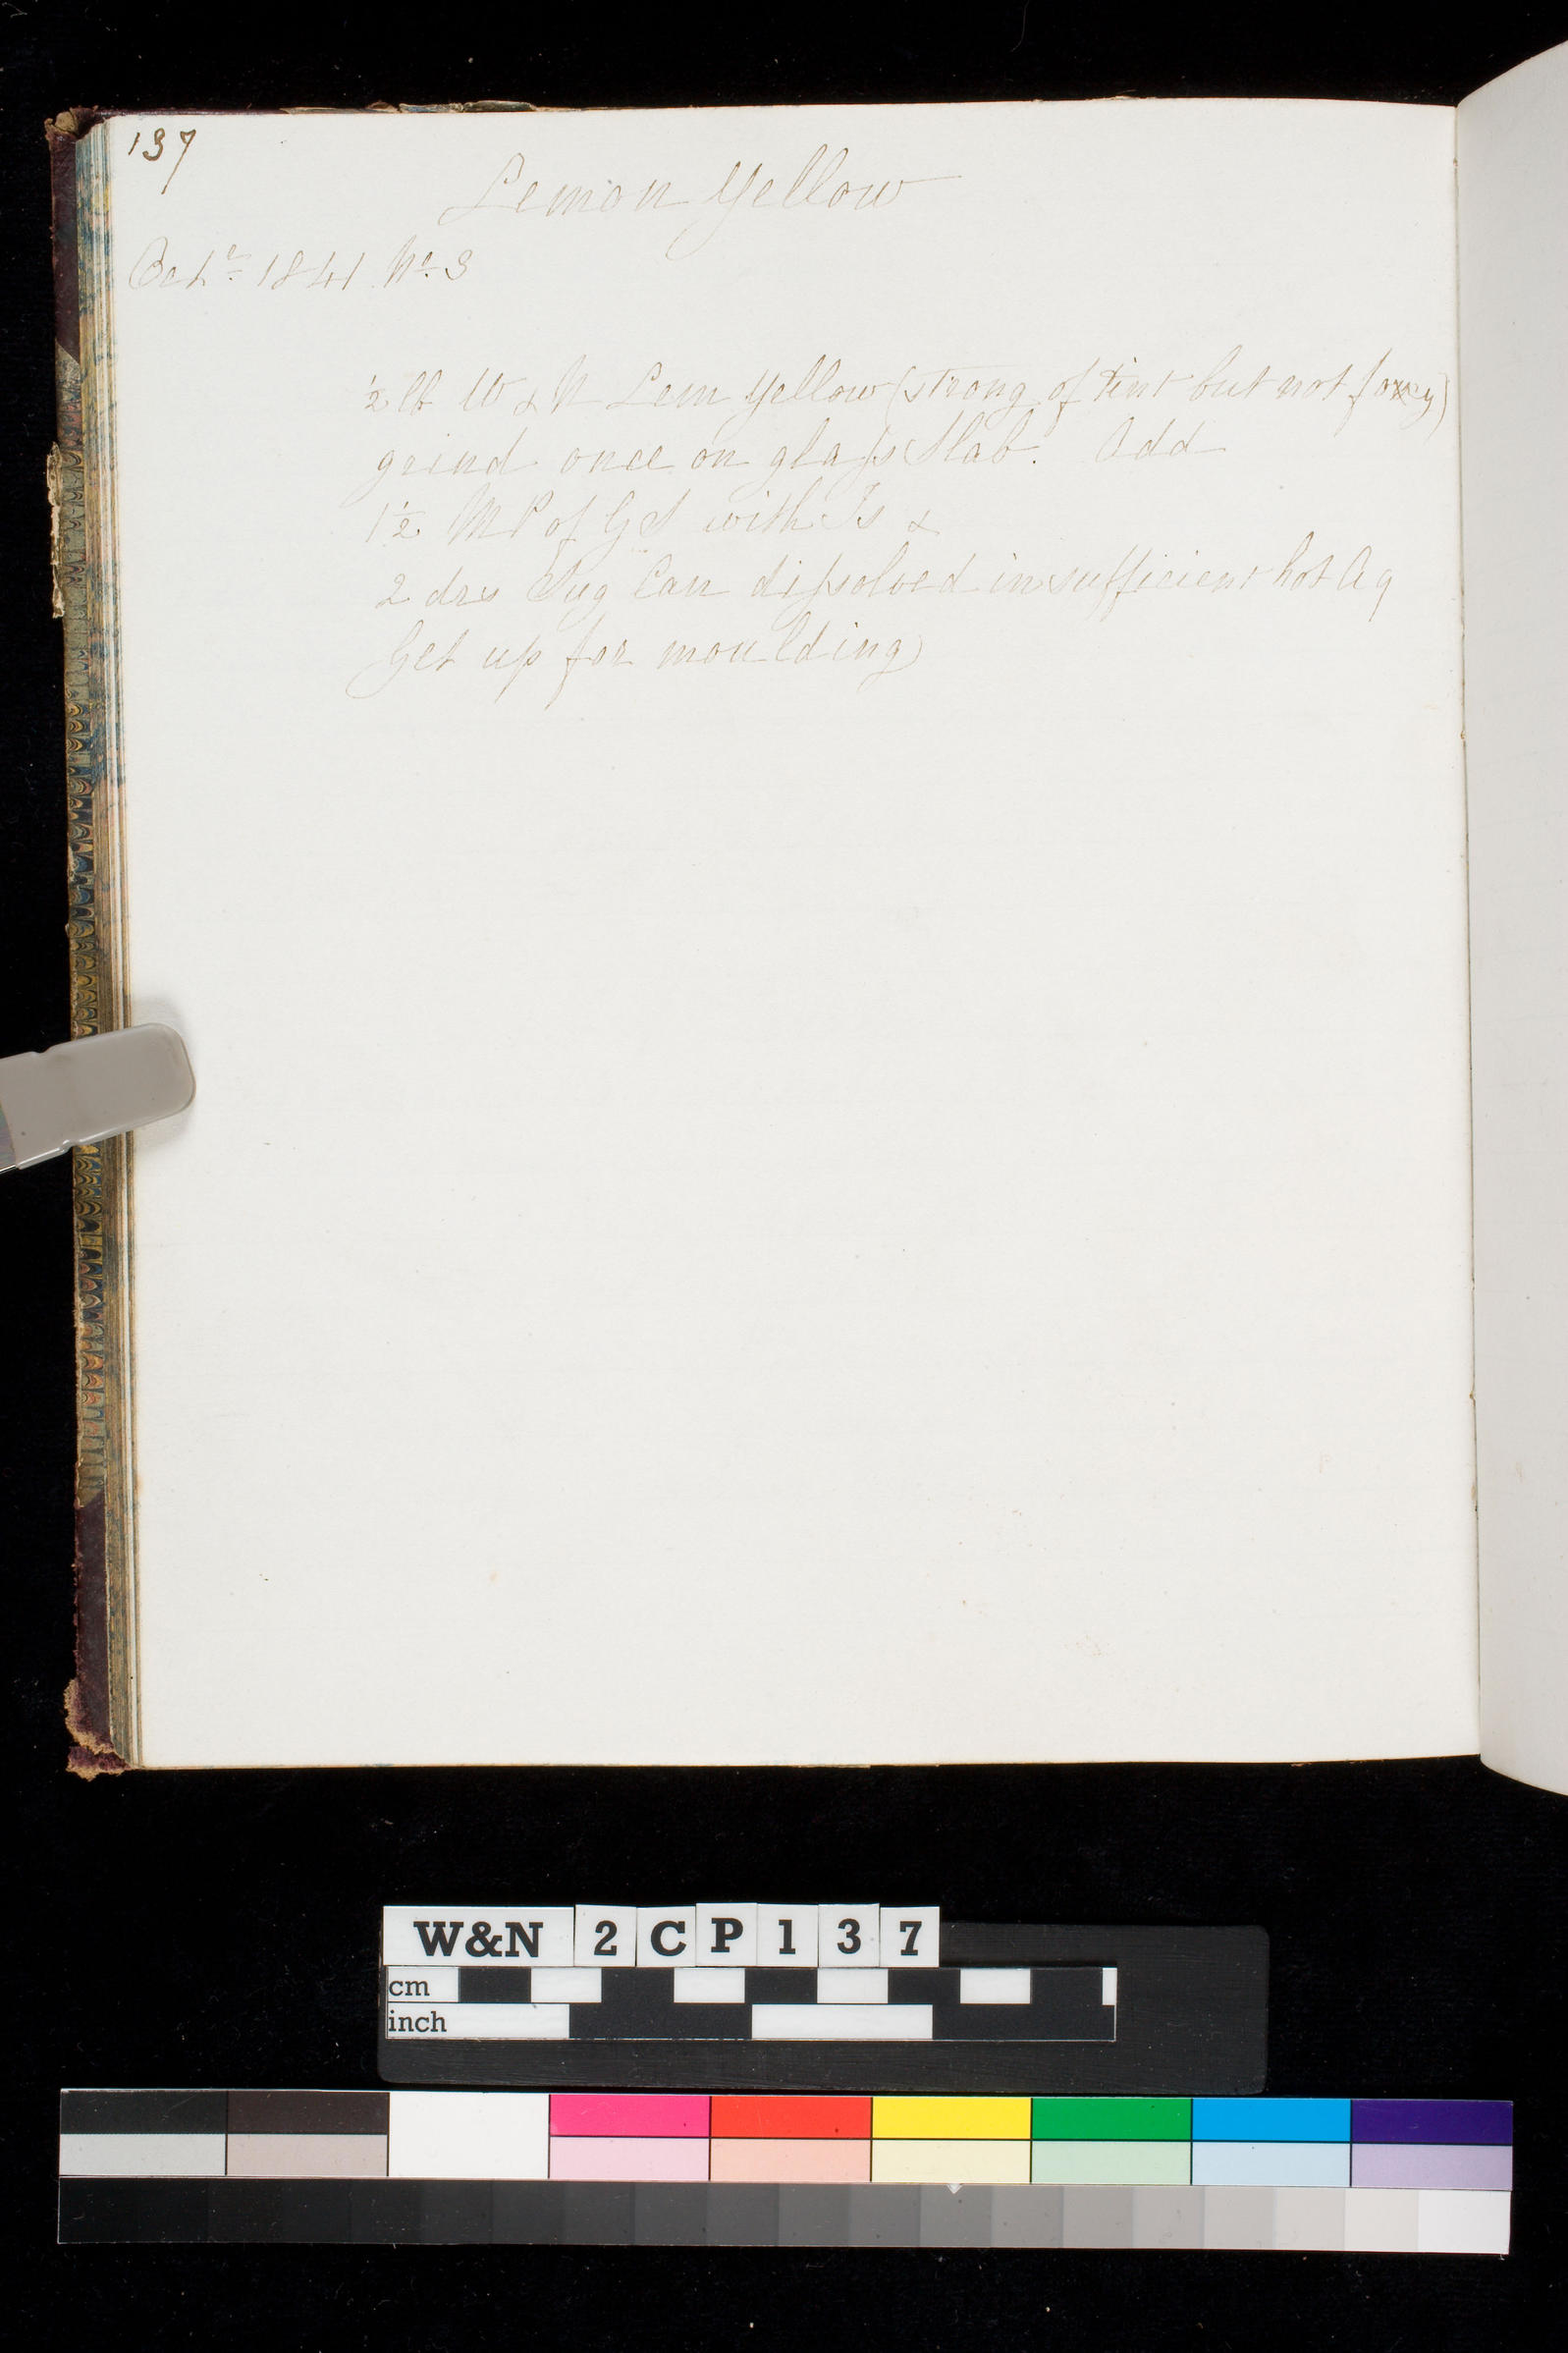 137
Lemon Yellow
Octr 1841 No 3
½ lb W & N Lem Yellow (strong of tint but not foxey)
grind once on glaſs Slab. Add
1½ MP of GS with Is &
2 drs Sug Can diſsolved in sufficient hot Aq
Get up for moulding
W&N 2CP137
cm
inch